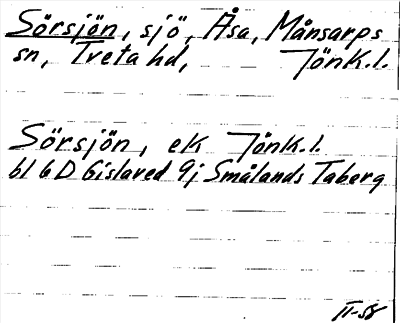 Sörsjön, sjö, Åsa, Månsarps
sn, Tveta hd, Jönk.l.
Sörsjön, ek Jönk.l.
bl 6D Gislaved 9j Smålands Taberg
II-58